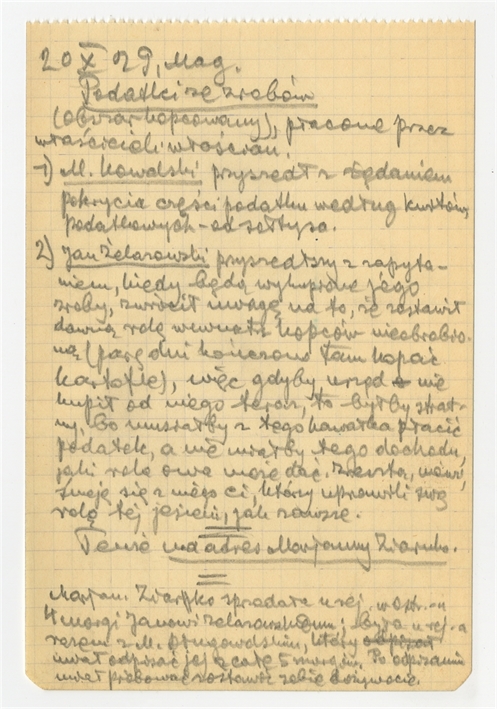 20 X 29, Mag.
Podatki ze zrobów
(obszar kopcowany), płacone przez
właścicieli włościan.
1) M. Kowalski przyszedł z żądaniem
pokrycia części podatku według kwitów
podatkowych – od sołtysa.
2) Jan Żelazowski przyszedłszy z zapyta-
niem, kiedy będą wykupione jego
zroby, zwrócił uwagę na to, że zostawił
dawną rolę wewnątrz kopców nieobrobio-
ną (parę dni kończono tam kopać
kartofle), więc gdyby urząd nie
kupił od niego teraz, to byłby strat-
ny, bo musiałby z tego kawałka płacić
podatek, a nie miałby tego dochodu,
jaki rola owa może dać. Zresztą, mówi,
śmieją się z niego ci, którzy uprawili swą
rolę tej jesieni, jak zawsze.
na adres Marjanny Ziarnko.
Marjan. sprzedała u rej. w
4 morgi Janowi Żelazowskiemu; była u rej-a
razem z M. Długowskim, który
miał odpisać jej całe 5 morgów. Po odpisaniu
miał próbować zostawić sobie dożywocie.